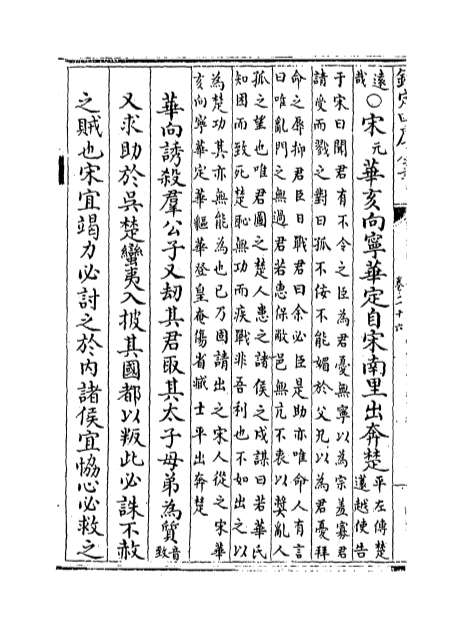 欽定四庫全書
卷二十六
逺哉○宋元華亥向寧華定自宋南里出奔楚平左傳楚薳越使告
于宋曰聞君有不令之臣為君憂無寧以為宗羞寡君
請受而戮之對曰孤不佞不能媚於父兄以為君憂拜
命之辱抑君臣日戰君曰余必臣是助亦唯命人有言
曰唯亂門之無過君若惠保敝邑無亢不衷以奬亂人
孤之望也唯君圖之楚人患之諸侯之戍謀曰若華氏
知困而致死楚恥無功而疾戰非吾利也不如出之以
為楚功其亦無能為也已乃固請出之宋人從之宋華
亥向寧華定華貙華登皇奄傷省臧士平出奔楚
華向誘殺羣公子又刼其君取其太子母弟為質音致
又求助於吳楚蠻夷入披其國都以叛此必誅不赦
之賊也宋宜竭力必討之於内諸侯宜恊心必救之